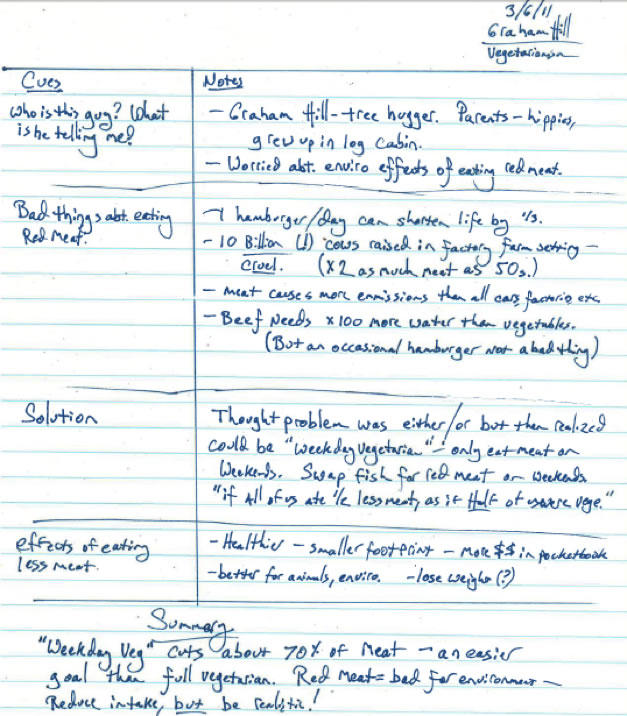 3/6/11
Graham Hill
Vegetarianism
Cues
Notes
Who is this guy? What
is he telling me?
- Graham Hill - tree hugger. Parents - hippies,
grew up in log cabin.
- Worried abt. enviro effects of eating red meat.
Bad things abt. eating
Red Meat.
- 1 hamburger/day can shorten life by 1/3.
- 10 Billion (!) cows raised in factory farm setting -
cruel. (x2 as much meat as 50s.)
- meat causes more emmissions than all cars, factories etc.
- Beef Needs x100 more water than vegetables.
(But an occasional hamburger not a bad thing)
Solution
Thought problem was either/or but then realized
could be "weekday vegetarian" - only eat meat on
Weekends. Swap fish for red meat on weekends.
"if All of us ate 1/2 less meat, as if Half of us were vege."
effects of eating
less meat.
- Healthier - smaller footprint - more $$ in pocketbook
- better for animals, enviro. - lose weight (?)
Summary
"Weekday Veg" cuts about 70% of Meat - an easier
goal than full vegetarian. Red Meat = bad for environment -
Reduce intake, but be realistic!